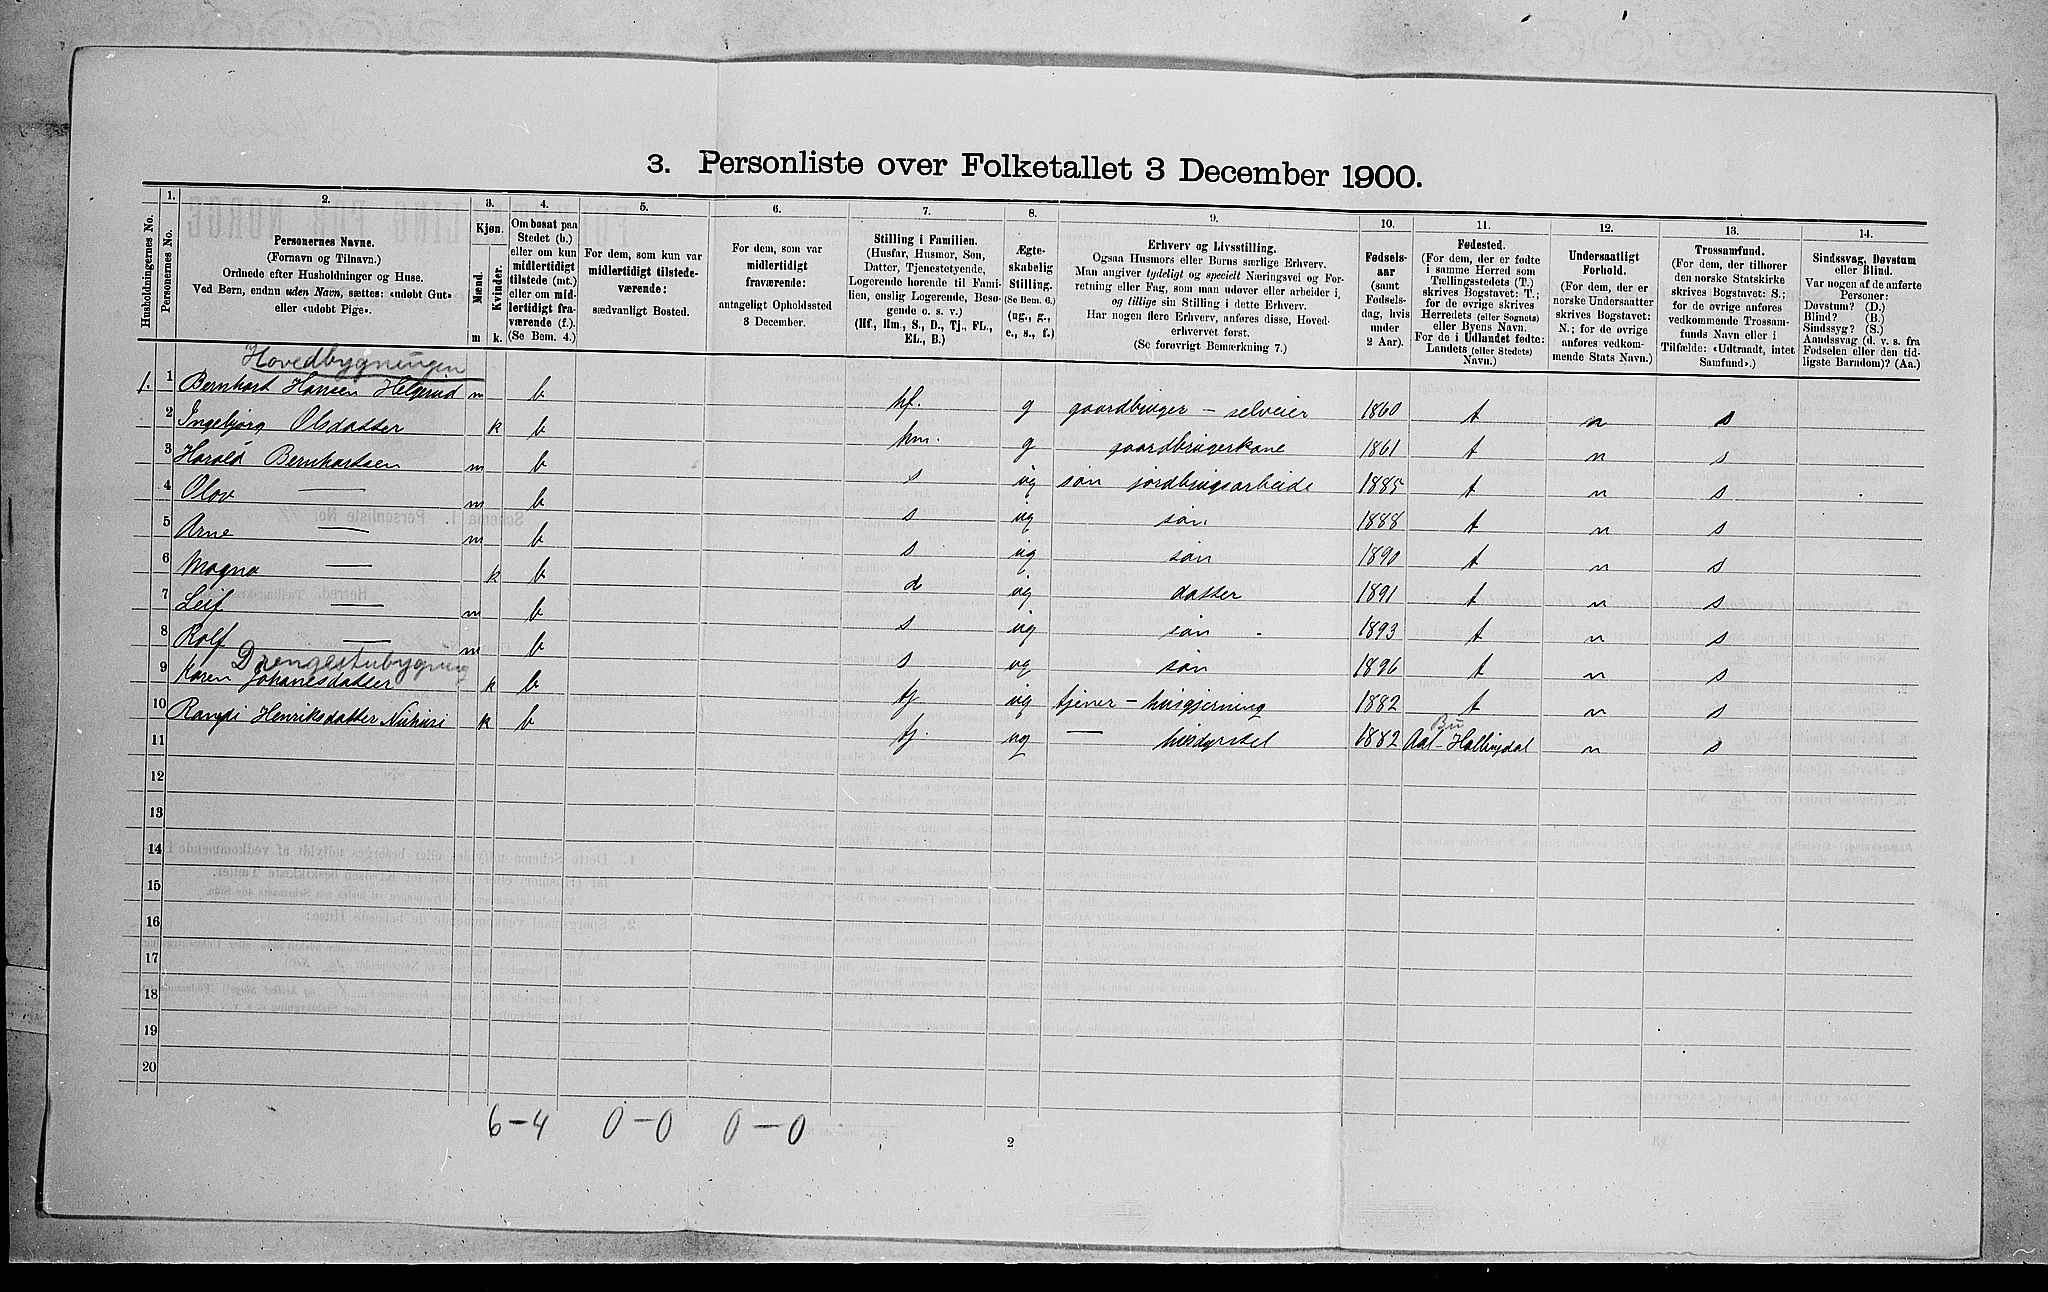 3. Personliste over Folketallet 3 December 1900.
1. 2. 3. 4. 5. 6. 7. 8. 9. 10. 11. 12. 13. 14.
Husholdningernes No.
Personernes No.
Personernes Navne.
(Fornavn og Tilnavn.)
Ordnede efter Husholdninger og Huse.
Ved Børn, endnu uden Navn, sættes: «udøbt Gut»
eller «udøbt Pige».
Kjøn.
Mænd.
Kvinder.
m k.
Om bosat paa
Stedet (b.)
eller om kun
midlertidigt
tilstede (mt.)
eller om mid-
lertidigt fra-
værende (f.).
(Se Bem. 4.)
For dem, som kun var
midlertidigt tilstede-
værende:
sædvanligt Bosted.
For dem, som var
midlertidigt
fraværende:
antageligt Opholdssted
3 December.
Stilling i Familien.
(Husfar, Husmor, Søn,
Datter, Tjenestetyende,
Logerende hørende til Fami-
lien, enslig Logerende, Besø-
gende o. s. v.)
(Hf., Hm., S., D., Tj., FL.,
EL., B.)
Ægte-
skabelig
Stilling.
(Se Bem. 6.)
(ug., g.,
e., s., f.)
Erhverv og Livsstilling.
Ogsaa Husmors eller Børns særlige Erhverv.
Man angiver tydeligt og specielt Næringsvei og For-
retning eller Fag, som man udøver eller arbeider i,
og tillige sin Stilling i dette Erhverv.
Har nogen flere Erhverv, anføres disse, Hoved-
erhvervet først.
(Se forøvrigt Bemærkning 7.)
Fødsels-
aar
(samt
Fødsels-
dag, hvis
under
2 Aar).
Fødested.
(For dem, der er fødte
i samme Herred som
Tællingsstedets (T.)
skrives Bogstavet: T.;
for de øvrige skrives
Herredets (eller Sognets)
eller Byens Navn.
For de i Udlandet fødte:
Landets (eller Stedets)
Navn.)
Undersaatligt
Forhold.
(For dem, der er
norske Undersaatter
skrives Bogstavet:
N.; for de øvrige
anføres vedkom-
mende Stats Navn.)
Trossamfund.
(For dem, der tilhører
den norske Statskirke
skrives Bogstavet: S.;
for de øvrige anføres
vedkommende Trossam-
funds Navn eller i
Tilfælde: «Udtraadt, intet
Samfund».)
Sindssvag, Døvstum
eller Blind.
Var nogen af de anførte
Personer:
Døvstum? (D.)
Blind? (B.)
Sindssyg? (S.)
Aandssvag (d. v. s. fra
Fødselen eller den tid-
ligste Barndom)? (Aa.)
Hovedbygningen
1. 1 Bernhart Hansen Helgerud m b hf. g gaardbruger - selveier 1860 t n s
2 Ingebjørg Olsdatter k b hm. g gaardbrugerkone 1861 t n s
3 Harald Bernhartsen m b s ug søn jordbrugsarbeide 1885 t n s
4 Olav — m b s ug søn 1888 t n s
5 Arne — m b s ug søn 1890 t n s
6 Magna — k b d ug datter 1891 t n s
7 Leif — m b s ug søn 1893 t n s
8 Rolf — m b s ug søn 1896 t n s
Drengestubygning
9 Karen Johanesdatter k b tj ug tjener - husgjerning 1882 t n s
10 Randi Henriksdatter k b tj. ug — 1882 Aal - Hallingdal n s
11
12
13
14
15
16
17
18
19
20
6-4 0-0 0-0
2